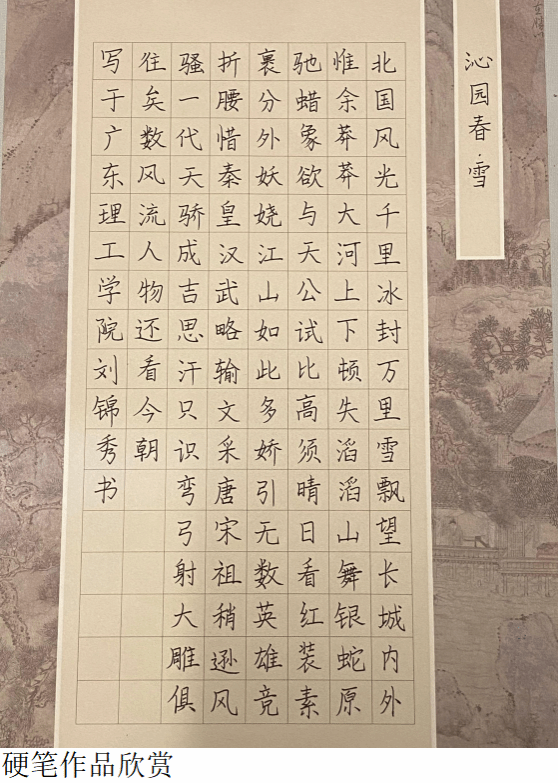 沁园春·雪
北国风光千里冰封万里雪飘望长城内外
惟余莽莽大河上下顿失滔滔山舞银蛇原
驰蜡象欲与天公试比高须晴日看红装素
裹分外妖娆江山如此多娇引无数英雄竞
折腰惜秦皇汉武略输文采唐宋祖稍逊风
骚一代天骄成吉思汗只识弯弓射大雕俱
往矣数风流人物还看今朝
写于广东理工学院刘锦秀书
硬笔作品欣赏